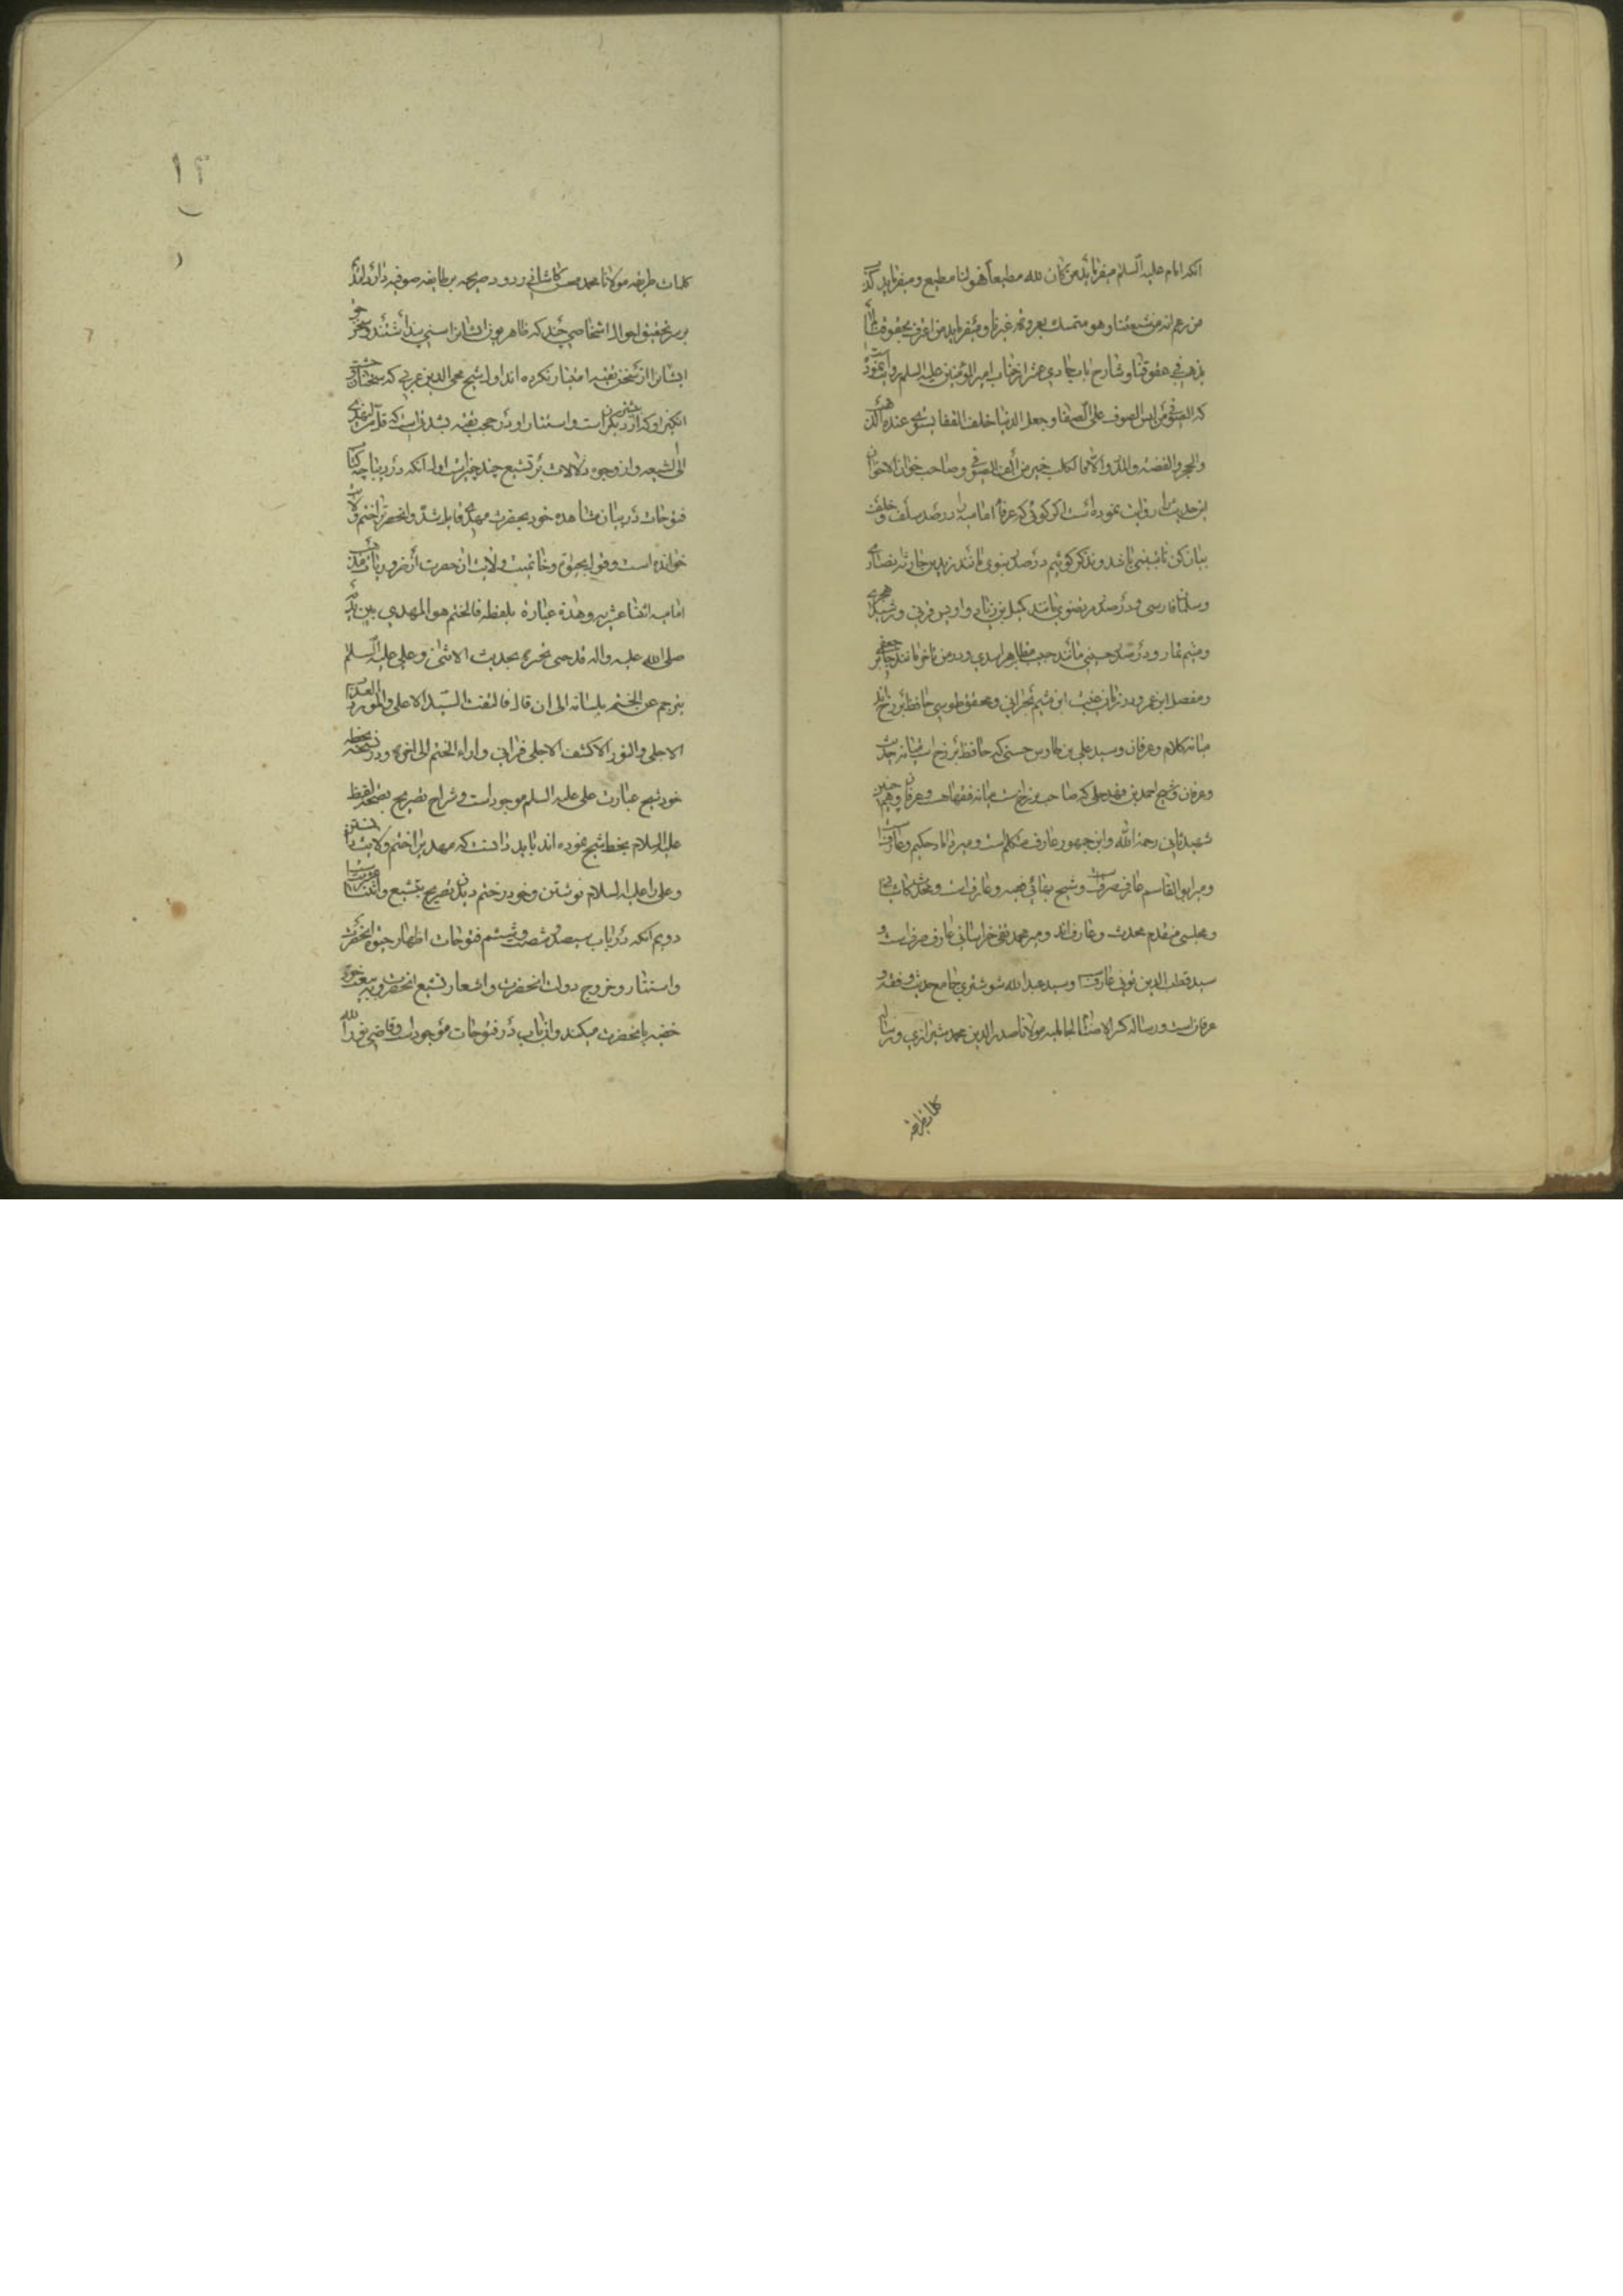 انکه امام علیه السلام میفرماید من کان لله مطیعاً فهو لنا مطیع و میفرماید کذب
من زعم انه من شیعتنا و هو متمسک بعروة غیرنا و میفرماید من اعرف بحقوق
فی حقوقنا و شارح باب حادی عشر از جناب امیر المؤمنین علیه السلم روایت نموده
که الصوفی من لبس الصوف علی الصفا و جعل الدنیا خلف القفا یستوی عنده الذهب
والحجر والفضة والمدر والا فالکلب خیر من الف الصوفی و صاحب خوان الاخوان
این حدیث را روایت نموده است اگر گوئی که عرفاء امامیه را در صدر سلف و خلف
بیان کن تا نفسی باشد و تذکر گوئیم در صدر نبوی مانند زید بن حارثه نصاری
و سلمان فارسی و در صدر مرتضوی مانند کمیل بن زیاد و اویس قرنی و رشید هجری
و میثم تمار و در صدر حسینی مانند حبیب مظاهر اسدی و در من تاخر مانند جابر جعفی
و مفصل ابن عمرو در زمان غیبت ابن میثم بحرانی و محقق طوسی حافظ برزخ اند
میانه کلام و عرفان و سید علی بن طاوس حسنی که حافظ برزخ است میانه حدیث
و عرفان و شیخ احمد بن فهد حلی که صاحب برزخ است میانه فقاهت و عرفان و هم چنین
شهید ثانی رحمة الله و ابن جمهور عارف متکلم است و میر داماد حکیم و عارف است
و میر ابو القاسم عارف صرف است و شیخ بهائی فقیه و عارف است و محدث کاشانی
و مجلسی متقدم محدث و عارف اند و میر محمد تقی خراسانی عارف صرف است و
سید قطب الدین نوبی عارف است و سید عبدالله شوشتری جامع حدیث و فقه و
عرفان است و رساله کسر الاصنام الجاهلیه مولانا صدر الدین محمد شیرازی و رساله
کلمات طریفه
کلمات طریفه مولانا محمد محسن کاشانی ردود صریحه بر طایفه صوفیه دارد اما
بر سر تحقیق احوال اشخاصی چند که ظاهر بین ایشان را سنی پنداشتند و سخن حق
ایشان را از سخن تقیه امتیاز نکرده اند اول شیخ محی الدین عربی که سخنان وحشت
انگیز او که از دیگران بیشتر است و استتار او در حجب تقیه بیشتر است
الی الشیعه و از وجوه دلالات بر تشیع چند چیز است اول آنکه در دیباچه کتاب
فتوحات در بیان مشاهده خود بحضرت مهدی قایل شد و انحضرت را ختم ولایت
خوانده است و قول بحیوة و خاتمیت ولایت ان حضرت از ضروریات مذهب
امامیه اثنا عشریه و هذه عبارة بلفظه فالختم هو المهدی بین یدیه
صلی الله علیه واله قد جثی یخبره بحدیث الانثی و علی علیه السلم
یترجم عن الختم بلسانه الی ان قال فالتفت السید الاعلی والمورد العذب
الاحلی والنور الاکشف الاجلی فرانی وراء الختم الی اخره و در نسخه بخط
خود شیخ عبارت علی علیه السلم موجود است و شراح تصریح بصحة لفظ
علیه السلام بخط شیخ نموده اند باید دانست که مهدی را ختم ولایت دانستن
و علی را علیه السلام نوشتن و خود را ختم دیدن تصریح بتشیع و است
دویم آنکه در باب سیصد و شصت و ششم فتوحات اظهار حیوة انحضرت
واستتار و خروج دولت انحضرت و اشعار تشیع انحضرت و بیعت خود
خفیه بانحضرت میکند و این باب در فتوحات موجود است و قاضی نور الله